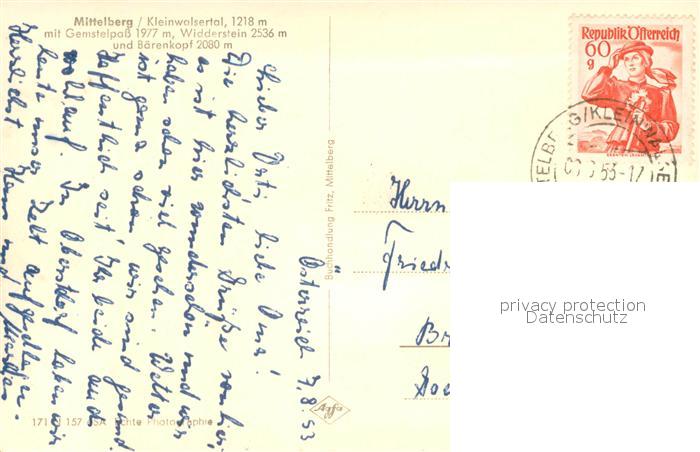 Mittelberg / Kleinwalsertal, 1218 m
mit Gemstelpaß 1977 m, Widderstein 2536 m
und Bärenkopf 2080 m
Österreich 7.8.53
Lieber liebe Oma!
Die herzlichsten Grüße von hier,
es ist hier wunderschön und wir
haben schon viel gesehen. Wetter
ist ganz schön, wir sind gesund.
Hoffentlich seit Ihr beide auch
wohlauf. In Oberstdorf haben wir
heute unser Zelt aufgeschlagen.
Herzlichst Hans und
Buchhandlung Fritz, Mittelberg
171 157 Echte Photographie
Agfa
Republik Österreich
60
g
Herrn
Friedr
Br
privacy protection
Datenschutz